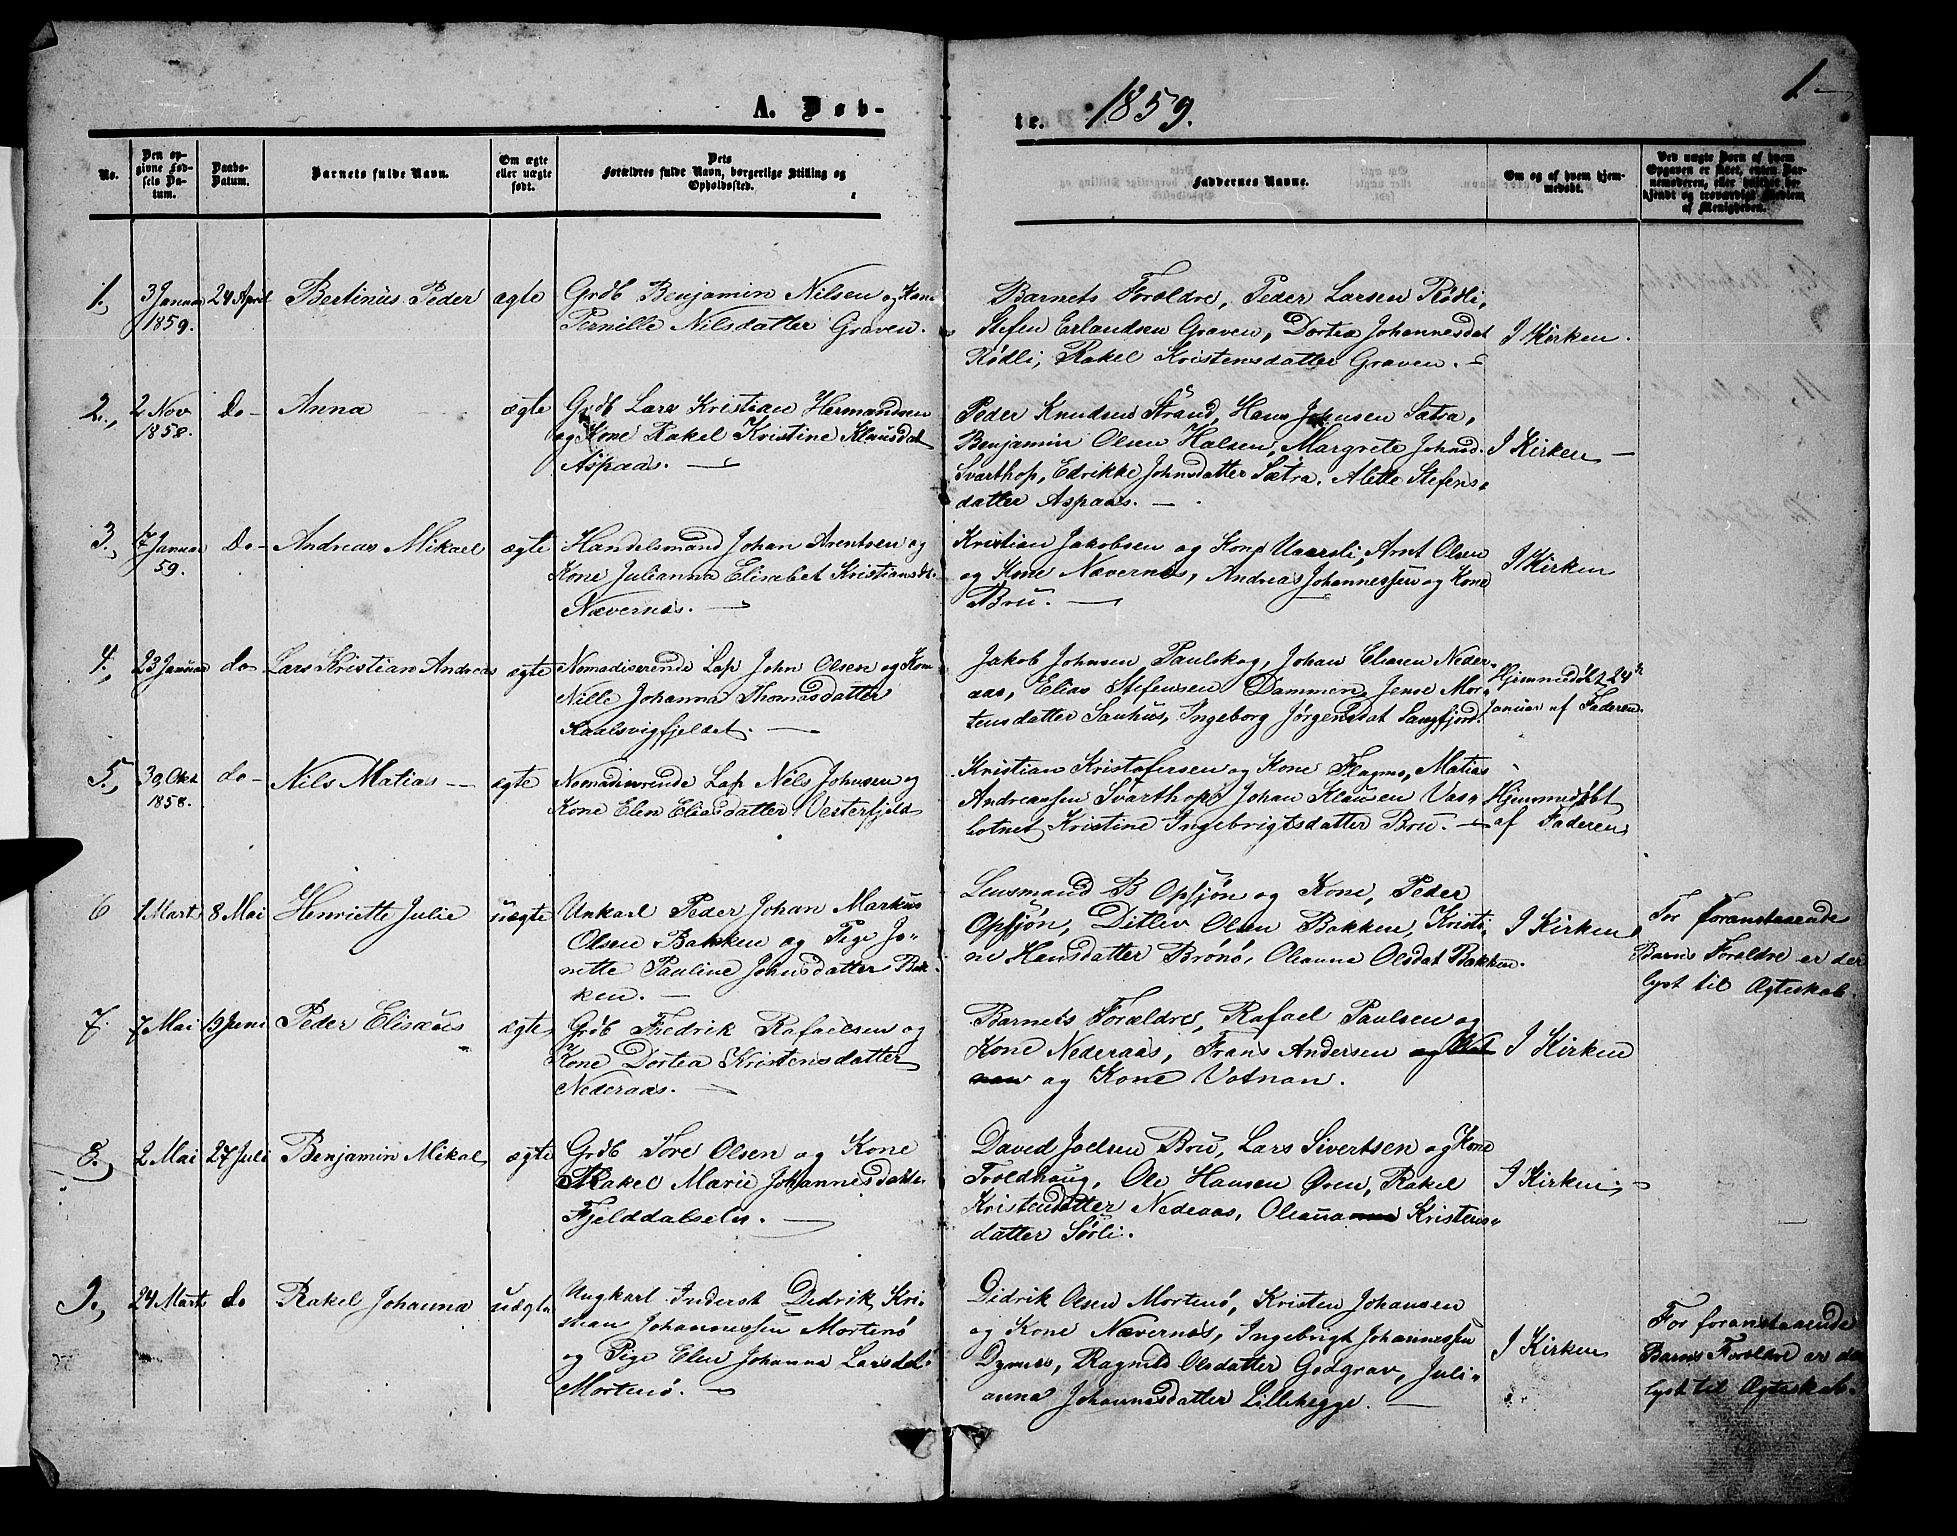 A. Døb-
te. 1859.
1.
No.
Den op-
givne Fød-
sels Da-
tum.
Daabs-
Datum.
Barnets fulde Navn.
Om ægte
eller uægte
født.
Dets
Forældres fulde Navn, borgerlige Stilling og
Opholdssted.
Faddernes Navne.
Om og af hvem hjem-
medøbt.
Ved uægte Børn af hvem
Opgaven er skeet, enten Bar-
nemoderen, eller hvilket be-
kjendt og troværdigt Medlem
af Menigheden.
1.
3 Januar
1859.
24 April
Bertinus Peder
ægte
Grdb Benjamin Nilsen og Kone
Pernille Nilsdatter Graven.
Barnets Foroldre, Peder Larsen Rødli,
Stefen Erlandsen Graven, Dortea Johannesdat
Rødli, Rakel Kristensdatter Graven.
I Kirken.
2.
2 Nov
1858.
do
Anna
ægte
Grdb Lars Kristian Hermandsen
og Kone Rakel Kristine Klausdat
Aspaas.
Peder Knudsen Strand, Hans Johnsen Sætra,
Benjamin Olsen Halsen, Margrete Johnsd.
Svarthop, Edrikke Johnsdatter Sætra. Alette Stefens-
datter Aspaas.
I Kirken
3.
7 Januar
59.
Do
Andreas Mikael
ægte
Handelsmand Johan Arentsen og
Kone Julianna Elisabet Kristiansdt.
Nævernæs.
Kristian Jakobsen og Kone Uaarsli, Arnt Olsen
og Kone Nævernæs, Andreas Johannessen og Kone
Bru.
I Kirken
4.
23 Januar
do
Lars Kristian Andreas
ægte
Nomadiserende Lap John Olsen og Kone
Nille Johanna Thomasdatter
Kaalsvigfjeldet.
Jakob Johnsen Paulskog, Johan Eliasen Neder-
aas, Elias Stefensen Dammen, Jense Mor-
tensdatter Sauhus, Ingeborg Jørgensdat Langfjord.
Hjemmedøbt 24de
Januar af Faderen.
5.
30 Okt
1858.
do
Nils Matias
ægte
Nomadiserende Lap Nils Johnsen og
Kone Elen Eliasdatter Vesterfjeld
Kristian Kristofersen og Kone Flagmo, Matias
Andreassen Svarthop, Johan Klausen Vas-
botnet Kristine Ingebrigtsdatter Bru.
Hjemmedøbt
af Faderen
6
1 Mart
8 Mai
Henriette Julie
uægte
Unkarl Peder Johan Markus
Olsen Bakken og Pige Jo-
nette Pauline Johnsdatter Bak-
ken.
Lensmand B Opsjøn og Kone, Peder
Opsjøn, Ditlev Olsen Bakken, Kristi-
ne Hansdatter Brønø, Oleanna Olsdat Bakken.
I Kirken
For foranstaaende
Barns Foroldre er der
lyst til Ægteskab.
7.
7 Mai
19 Juni
Peder Elisæus
ægte
Grdb Fredrik Rafaelsen og
Kone Dortea Kristensdatter
Nederaas.
Barnets Forældre, Rafael Paulsen og
Kone Nederaas, Frans Andersen
og Kone Votnan.
I Kirken
8.
2 Mai
27 Juli
Benjamin Mikal
ægte
Grdb Tore Olsen og Kone
Rakel Marie Johannesdatte
Fjelddalselv.
David Joelsen Bru, Lars Sivertsen og Kone
Troldhaug, Ole Hansen Øren, Rakel
Kristensdatter Nederaas, Oleana Kristens-
datter Sørli.
I Kirken
9.
24 Mart
do
Rakel Johanna
uægte
Ungkarl Inderst Didrik Kri-
stian Johannessen Mortenø
og Pige Elen Johanna Larsdat
Mortenø.
Didrik Olsen Mortenø, Kristen Johansen
og Kone Nævernæs, Ingebrigt Johannessen
Dymes, Ragnild Olsdatter Godgrav, Juli-
anna Johannesdatter Lillehegge.
I Kirken
For foranstaaende
Barns Foroldre er der
lyst til Ægteskab.